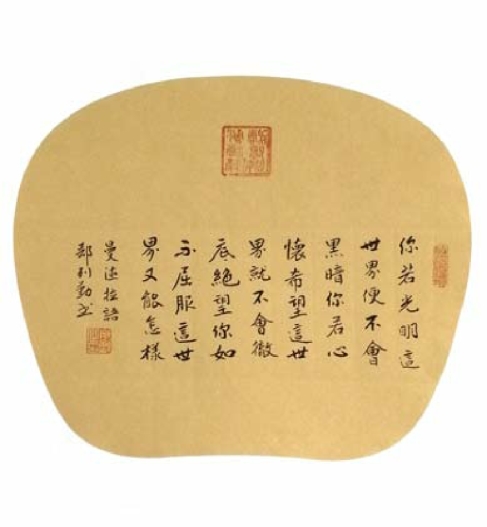 你若光明這
世界便不會
黑暗你若心
懷希望這世
界就不會徹
底絕望你如
不屈服這世
界又能怎樣
曼德拉語
郅利勤書